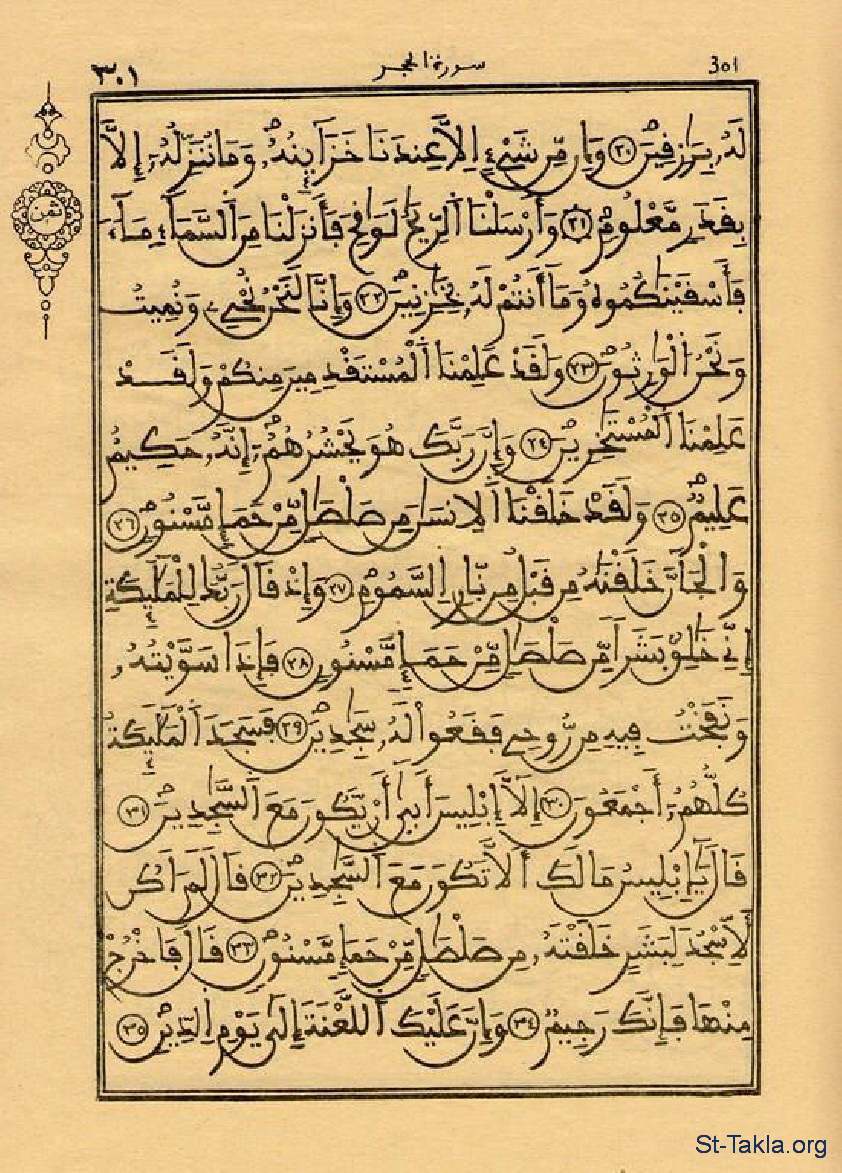 ٣٠١ سورة الحجر 301
لَهُۥ بِرَٰزِفِينَ ٢٠ وَإِن مِّن شَےْءٍ اِلَّا عِندَنَا خَزَآئِنُهُۥ وَمَا نُنَزِّلُهُۥٓ إِلَّا
ثمن
بِفَدَرٖ مَّعْلُومٖ ٢١ وَأَرْسَلْنَا اَ۬لرِّيَٰحَ لَوَٰفِحَ فَأَنزَلْنَا مِنَ اَ۬لسَّمَآءِ مَآءٗ
فَأَسْفَيْنَٰكُمُوهُ وَمَآ أَنتُمْ لَهُۥ بِخَٰزِنِينَ ٢٢ وَإِنَّا لَنَحْنُ نُحْيِۦ وَنُمِيتُ
وَنَحْنُ اُ۬لْوَٰرِثُونَ ٢٣ وَلَفَدْ عَلِمْنَا اَ۬لْمُسْتَفْدِمِينَ مِنكُمْ وَلَفَدْ
عَلِمْنَا اَ۬لْمُسْتَٰخِرِينَ ٢٤ وَإِنَّ رَبَّكَ هُوَ يَحْشُرُهُمُۥٓ إِنَّهُۥ حَكِيمٌ
عَلِيمٞ ٢٥ وَلَفَدْ خَلَفْنَا اَ۬لِانسَٰنَ مِن صَلْصَٰلٖ مِّنْ حَمَإٖ مَّسْنُونٖ ٢٦
وَالْجَآنَّ خَلَفْنَٰهُ مِن فَبْلُ مِن نّ۪ارِ اِ۬لسَّمُومِ ٢٧ وَإِذْ فَالَ رَبُّكَ لِلْمَلَٰٓئِكَةِ
إِنِّے خَٰلِقُۢ بَشَراٗ مِّن صَلْصَٰلٖ مِّنْ حَمَإٖ مَّسْنُونٖ ٢٨ فَإِذَا سَوَّيْتُهُۥ
وَنَفَخْتُ فِيهِ مِن رُّوحِے فَفَعُواْ لَهُۥ سَٰجِدِينَ ٢٩ فَسَجَدَ اَ۬لْمَلَٰٓئِكَةُ
كُلُّهُمُۥٓ أَجْمَعُونَ ٣٠ إِلَّآ إِبْلِيسَ أَب۪ىٰٓ أَنْ يَّكُونَ مَعَ اَ۬لسَّٰجِدِينَ ٣١
فَالَ يَٰٓإِبْلِيسُ مَا لَكَ أَلَّا تَكُونَ مَعَ اَ۬لسَّٰجِدِينَ ٣٢ فَالَ لَمَ اَكُن
لِّأَسْجُدَ لِبَشَرٍ خَلَفْتَهُۥ مِن صَلْصَٰلٖ مِّنْ حَمَإٖ مَّسْنُونٖ ٣٣ فَالَ فَاخْرُجْ
مِنْهَا فَإِنَّكَ رَجِيمٞ ٣٤ وَإِنَّ عَلَيْكَ اَ۬للَّعْنَةَ إِلَىٰ يَوْمِ اِ۬لدِّينِ ٣٥
St-Takla.org